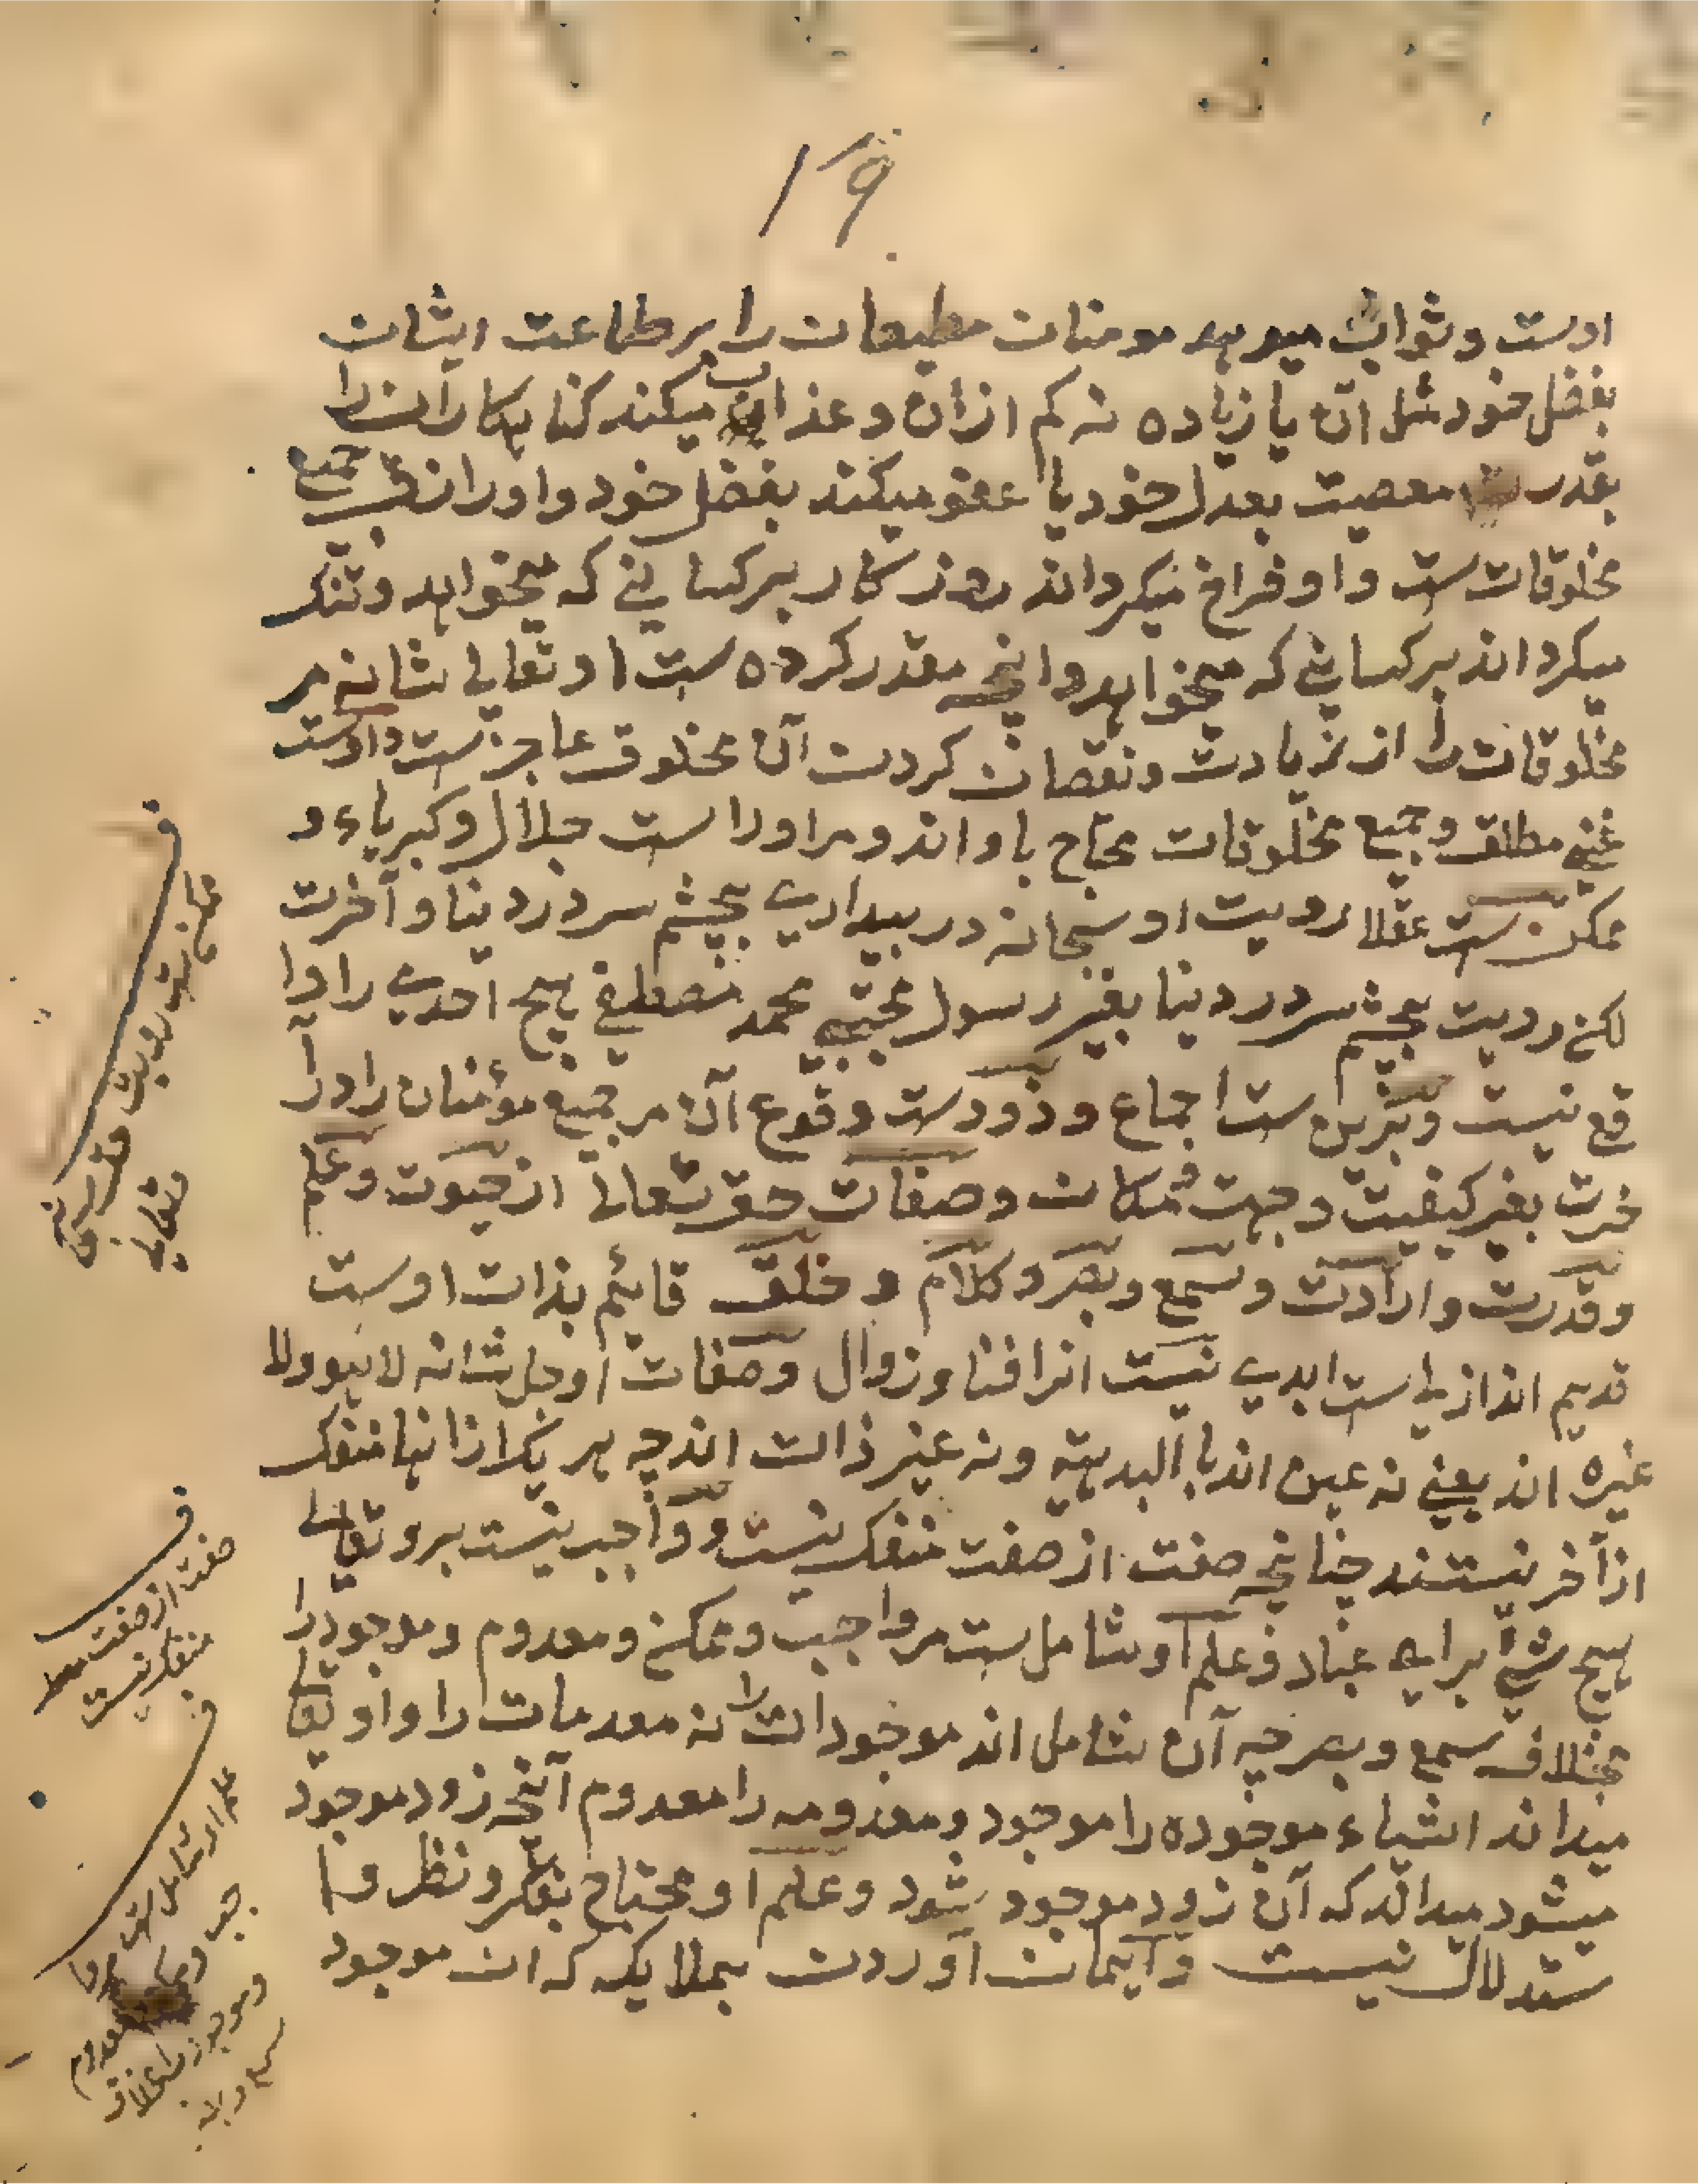 ۱۹
اوست و ثواب میدهد مومنان مطیعان را بر طاعت ایشان
بفضل خود مثل ان یا زیاده نه کم ازان و عذاب میکند کناهکاران را
بقدر معصیت بعدل خود یا عفو میکند بفضل خود و او رازق جمیع
مخلوقات ست و او فراخ میکرداند روزکار بر کسانی که میخواهد و تنک
میکرداند بر کسانی که میخواهد و انچه مقدر کرده ست او تعالی شانه مر
مخلوقات را از زیادت و نقصان کردن آن مخلوق عاجز ست و اوست
غنی مطلق و جمیع مخلوقات محتاج باو اند و مر او را است جلال و کبریاء و
ممکن ست عقلا رویت او سبحانه در بیداری بچشم سر در دینا و آخرت
لکن رویت بچشم سر در دینا بغیر رسول مجتبی محمد مصطفی هیچ احدی را وا
قع نیست و برین ست اجماع و زودست وقوع آن مر جمیع مؤمنان را در آ
خرت بغیر کیفیت و جهت و مکان و صفات حق تعالی از حیوت و علم
و قدرت و ارادت و سمع و بصر و کلام و خلق قایم بذات اوست
قدیم اند ازلی است ابدی نیست انرا فنا و زوال و صفات او جل شانه لا هو ولا
غیره اند یعنی نه عین اند با البدیهته و نه غیر ذالت اند چه هر یک از انها منفک
از آخر نیستند چنانچه صفت از صفت منفک نیست و واجب نیست برو تعالی
هیچ شئ برایه عباد و علم او شامل ست مر واجب و ممکن و معدوم و موجود را
بخلاف سمع و بصر چه آن شامل اند موجودات را نه معدمات را و او تعالی
میداند اشیاء موجوده را موجود و معدومه را معدوم آنچه زود موجود
میشود میداند که آن زود موجود بشود و علم او محتاج بفکر و نظر و ا
ستدلال نیست و ایمان آوردن بملایکه که ان موجود
ف
ممکن ست رویت
و تعالی
ف
صفت از صفت
منفک نیست
ف
علم او شامل ست مر وا
جب و
معدوم
و موجود را بخلاف
سمع و بصر